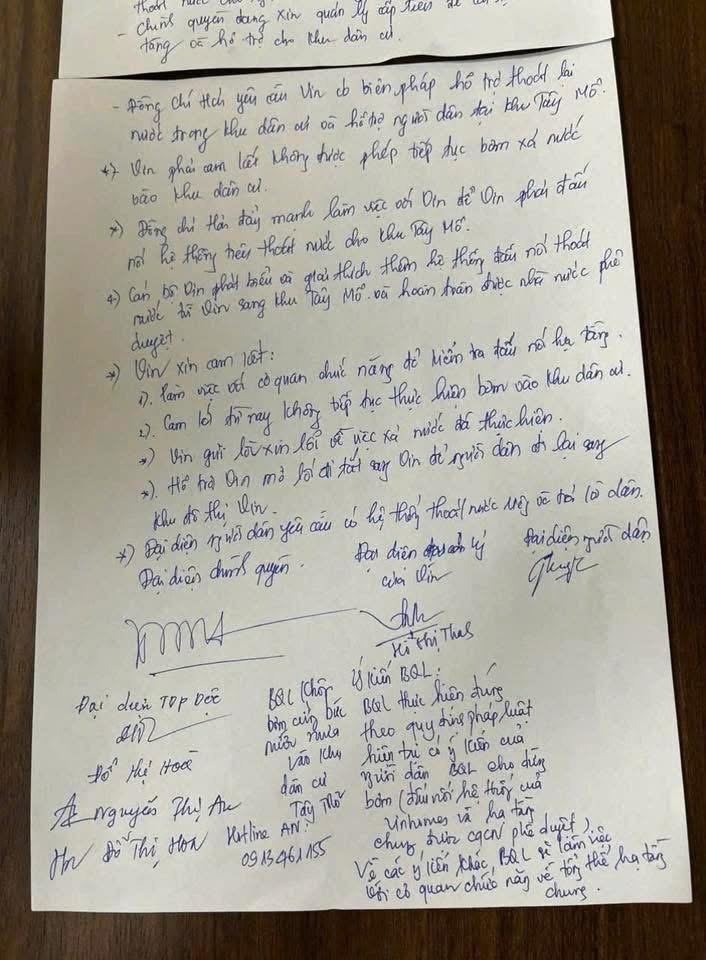 - Chính quyền đang xin quản lý cấp trên để
tầng và hỗ trợ cho khu dân cư.
- Đồng chí tịch yêu cầu Vin có biện pháp hỗ trợ thoát lại
nước trong khu dân cư và hỗ trợ người dân tại khu Tây Mỗ.
*) Vin phải cam kết không được phép tiếp tục bơm xả nước
vào khu dân cư.
*) Đồng chí Hải đẩy mạnh làm việc với Vin để Vin phải đấu
nối hệ thống tiêu thoát nước cho khu Tây Mỗ.
*) Cán bộ Vin phát biểu và giải thích thêm hệ thống đấu nối thoát
nước từ Vin sang khu Tây Mỗ và hoàn toàn được nhà nước phê
duyệt.
*) Vin xin cam kết:
1). Làm việc với cơ quan chức năng để kiểm tra đấu nối hạ tầng.
2). Cam kết từ nay không tiếp tục thực hiện bơm vào khu dân cư.
*) Vin gửi lời xin lỗi về việc xả nước đã thực hiện.
*). Hỗ trợ Vin mở lối đi tắt sang Vin để người dân đi lại sang
khu đô thị Vin.
*) Đại diện người dân yêu cầu có hệ thống thoát nước riêng và trả lời dân.
Đại diện chính quyền.
Đại diện quản lý
của Vin
Đại diện người dân
Hồ Thị Thao
Đại diện TDP Dộc
Đỗ Thị Hoà
Nguyễn Thị An
Hoa Đỗ Thị Hoa
BQL không
bơm cưỡng bức
nước mưa
vào khu
dân cư
Tây Mỗ
Hotline AN:
0913461155
Ý kiến BQL:
BQL thực hiện đúng
theo quy định pháp luật
hiện tại có ý kiến của
người dân BQL cho dừng
bơm (đấu nối hệ thống của
Vinhomes và hạ tầng
chung được CQCN phê duyệt).
Về các ý kiến khác BQL sẽ làm việc
với cơ quan chức năng về tổng thể hạ tầng
chung.